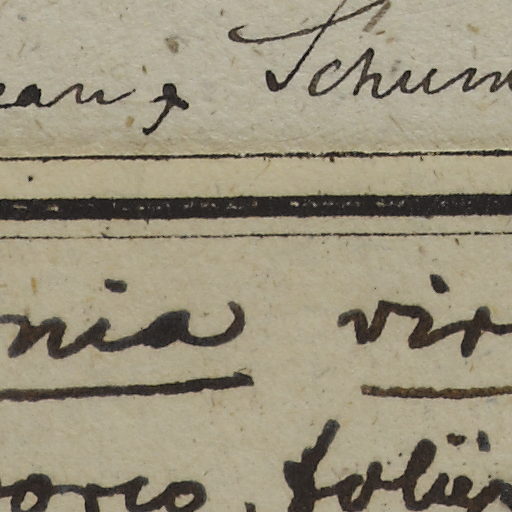 ean, Schum
nia vir
orco, foliis